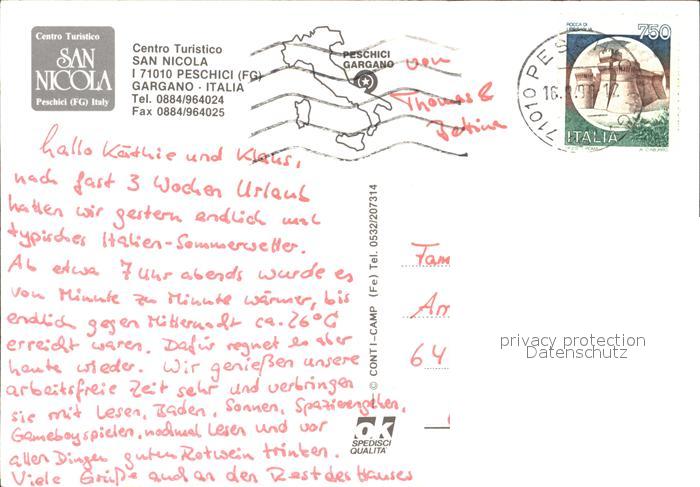 Centro Turistico
SAN
NICOLA
Peschici (FG) Italy
Centro Turistico
SAN NICOLA
I 71010 PESCHICI (FG)
GARGANO · ITALIA
Tel. 0884/964024
Fax 0884/964025
PESCHICI
GARGANO
von
Thomas &
Bettina
750
ITALIA
71010 PES
hallo Käthie und Klaus,
nach fast 3 Wochen Urlaub
hatten wir gestern endlich mal
typisches Italien-Sommerwetter.
Ab etwa 7 Uhr abends wurde es
von Minute zu Minute wärmer, bis
endlich gegen Mitternacht ca. 26°C
erreicht waren. Dafür regnet es aber
heute wieder. Wir genießen unsere
arbeitsfreie Zeit sehr und verbringen
sie mit Lesen, Baden, Sonnen, Spazierengehen,
Gameboyspielen, nochmal Lesen und vor
allen Dingen guten Rotwein trinken.
Viele Grüße auch an den Rest des Hauses
© CONTI-CAMP (Fe) Tel. 0532/207314
Fam
Am
64
ok
SPEDISCI
QUALITA'
privacy protection
Datenschutz